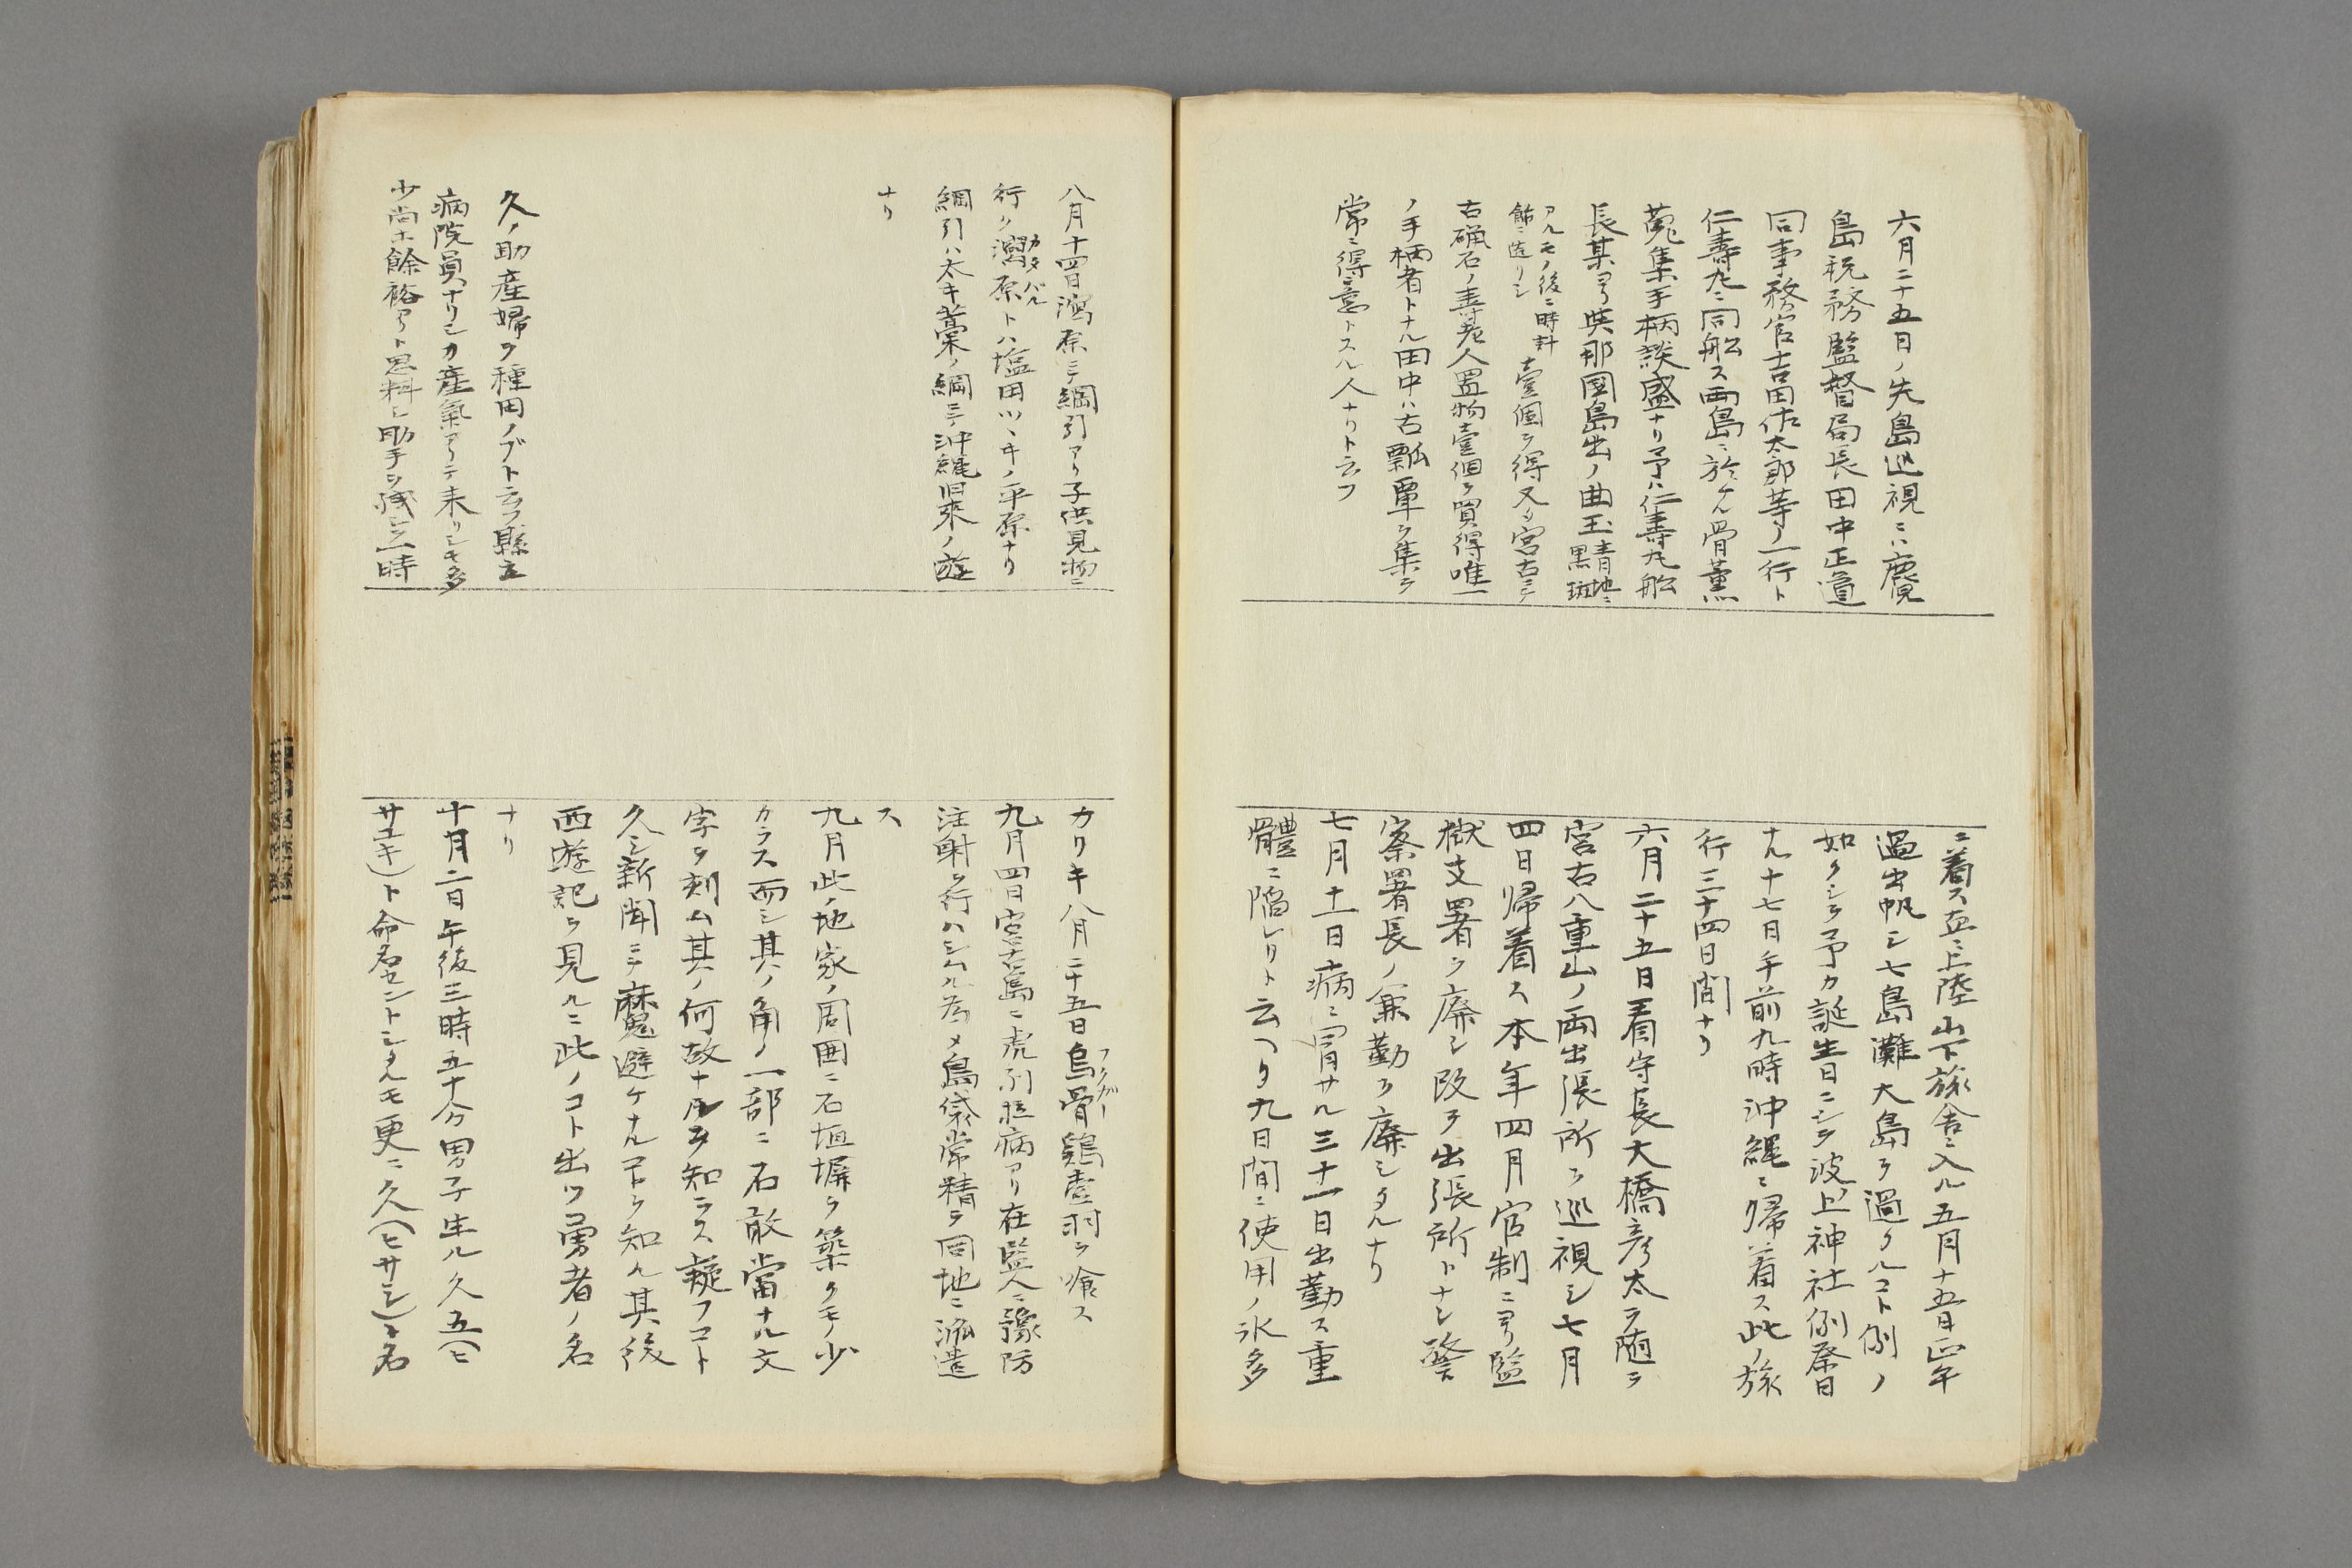 六月二十五日ノ先島巡視ニハ麑
島税務監督局長田中正道
同事務官吉田佐太郎等ノ一行ト
仁壽丸ニ同船ス両島ニ於ケル骨董
蒐集手柄談盛ナリ予ハ仁壽丸船
長某ヨリ與那国島出ノ曲玉青地ニ黒斑
アルモノ後ニ時計飾ニ造リシ壹個ヲ得又タ宮古ニテ
古硨石ノ人置物壹個ヲ買得唯一
ノ手柄者トナル田中ハ古瓢箪ヲ集テ
常ニ得意トスル人ナリト云フ
ニ着ス直ニ上陸山下旅舎ニ入ル五月十五日正午
過出帆シ七島灘大島ヲ過クルコト例ノ
如クシテ予カ誕生日ニシテ波上神社例祭日
ナル十七日午前九時沖縄ニ帰着ス此ノ旅
行三十四日間ナリ
六月二十五日看守長大橋彦太ヲ随ヘ
宮古八重山ノ両出張所ヲ巡視シ七月
四日帰着ス本年四月官制ニヨリ監
獄支署ヲ廃シ改テ出張所トナシ警
察署長ノ兼勤ヲ廃シタルナリ
七月十一日病ニ冐サル三十一日出勤ス重
體ニ陥レリト云ヘリ九日間ニ使用ノ氷多
八月十四日潟原ニテ綱引アリ子供見物ニ
行ク潟原カタバルトハ塩田ツヽキノ平原ナリ
綱引ハ太キ藁ノ綱ニテ沖縄旧来ノ遊
ナリ
久ノ助産婦ヲ種田ノブト云フ縣立
病院員ナリシカ産氣アリテ来リシモ多
少尚ホ餘裕アリト思料シ助手ヲ残シ一時
カリキ八月二十五日烏骨鶏壹羽ヲ喰ス
九月四日宮古島ニ虎列拉病アリ在監人ニ豫防
注射ヲ行ハシムル為メ島袋常精ヲ同地ニ派遣
ス
九月此ノ地家ノ周囲ニ石垣塀ヲ築クモノ少
カラス而シ其ノ角ノ一部ニ石敢當ナル文
字ヲ刻ム其ノ何故ナルヲ知ラス疑フコト
久シ新聞ニテ魔避ケナルコトヲ知ル其後
西遊記ヲ見ルニ此ノコト出ツ勇者ノ名
ナリ
十月二日午後三時五十分男子生ル久五(ヒ
サユキ)ト命名セントシタルモ更ニ久(ヒサシ)ト名